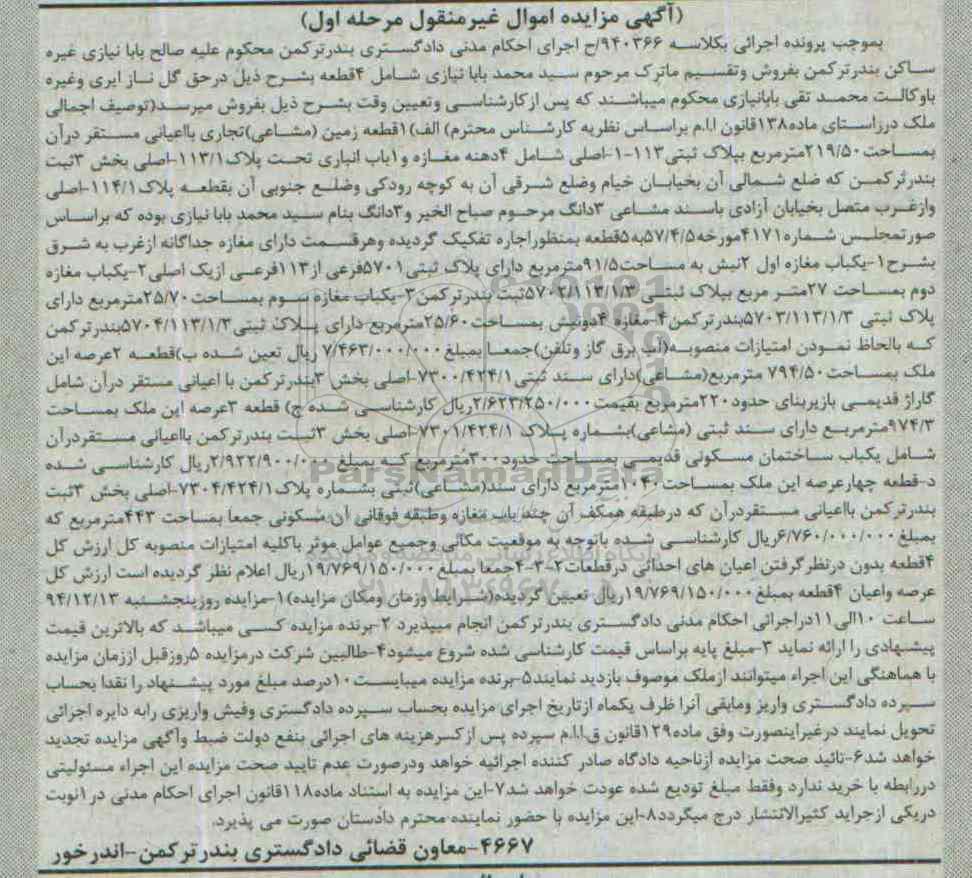 (آگهی مزایده اموال غیرمنقول مرحله اول)
بموجب پرونده اجرائی بکلاسه ۹۴۰۳۶۶/ح اجرای احکام مدنی دادگستری بندرترکمن محکوم علیه صالح بابا نیازی غیره
ساکن بندرترکمن بفروش وتقسیم ماترک مرحوم سید محمد بابا نیازی شامل ۴قطعه بشرح ذیل درحق گل ناز ایری وغیره
باوکالت محمد تقی بابانیازی محکوم میباشند که پس ازکارشناسی وتعیین وقت بشرح ذیل بفروش میرسد(توصیف اجمالی
ملک درراستای ماده۱۳۸قانون ا.ا.م براساس نظریه کارشناس محترم) الف)۱قطعه زمین (مشاعی)تجاری بااعیانی مستقر درآن
بمساحت۲۱۹/۵۰مترمربع بپلاک ثبتی۱۱۳-۱-اصلی شامل ۴دهنه مغازه و۱باب انباری تحت پلاک۱۱۳/۱-اصلی بخش ۳ثبت
بندرترکمن که ضلع شمالی آن بخیابان خیام وضلع شرقی آن به کوچه رودکی وضلع جنوبی آن بقطعه پلاک۱۱۴/۱-اصلی
وازغرب متصل بخیابان آزادی باسند مشاعی ۳دانگ مرحوم صباح الخیر و۳دانگ بنام سید محمد بابا نیازی بوده که براساس
صورتمجلس شماره۴۱۷۱مورخه۵۷/۴/۵به۵قطعه بمنظوراجاره تفکیک گردیده وهرقسمت دارای مغازه جداگانه ازغرب به شرق
بشرح۱-یکباب مغازه اول ۲نبش به مساحت۹۱/۵مترمربع دارای پلاک ثبتی۵۷۰۱فرعی از۱۱۳فرعی ازیک اصلی۲-یکباب مغازه
دوم بمساحت ۲۷متر مربع بپلاک ثبتی ۵۷۰۲/۱۱۳/۱/۳ثبت بندرترکمن۳-یکباب مغازه سوم بمساحت۲۵/۷۰مترمربع دارای
پلاک ثبتی ۵۷۰۳/۱۱۳/۱/۳بندرترکمن۴-مغازه ۴دونبش بمساحت۲۵/۶۰مترمربع دارای پلاک ثبتی۵۷۰۴/۱۱۳/۱/۳بندرترکمن
که بالحاظ نمودن امتیازات منصوبه(آب برق گاز وتلفن)جمعا بمبلغ۷/۴۶۳/۰۰۰/۰۰۰ ریال تعین شده ب)قطعه ۲عرصه این
ملک بمساحت۷۹۴/۵۰ مترمربع(مشاعی)دارای سند ثبتی۷۳۰۰/۴۲۴/۱-اصلی بخش ۳بندرترکمن با اعیانی مستقر درآن شامل
گاراژ قدیمی بازیربنای حدود۲۲۰مترمربع بقیمت۲/۶۲۳/۲۵۰/۰۰۰ریال کارشناسی شده ج) قطعه ۳عرصه این ملک بمساحت
۹۷۴/۳مترمربع دارای سند ثبتی (مشاعی)بشماره پلاک ۷۳۰۱/۴۲۴/۱-اصلی بخش ۳ثبت بندرترکمن بااعیانی مستقردرآن
شامل یکباب ساختمان مسکونی قدیمی بمساحت حدود۳۰۰مترمربع که بمبلغ ۲/۹۲۲/۹۰۰/۰۰۰ریال کارشناسی شده
د-قطعه چهارعرصه این ملک بمساحت۱۰۴۰مترمربع دارای سند(مشاعی)ثبتی بشماره پلاک۷۳۰۴/۴۲۴/۱-اصلی بخش ۳ثبت
بندرترکمن بااعیانی مستقردرآن که درطبقه همکف آن چند باب مغازه وطبقه فوقانی آن مسکونی جمعا بمساحت ۴۴۳مترمربع که
بمبلغ۶/۷۶۰/۰۰۰/۰۰۰ریال کارشناسی شده باتوجه به موقعیت مکانی وجمیع عوامل موثر باکلیه امتیازات منصوبه کل ارزش کل
۴قطعه بدون درنظرگرفتن اعیان های احداثی درقطعات۲-۳-۴جمعا بمبلغ۱۹/۷۶۹/۱۵۰/۰۰۰ریال اعلام نظر گردیده است ارزش کل
عرصه واعیان ۴قطعه بمبلغ۱۹/۷۶۹/۱۵۰/۰۰۰ریال تعیین گردیده(شرایط وزمان ومکان مزایده)۱-مزایده روزپنجشنبه ۹۴/۱۲/۱۳
ساعت ۱۰الی۱۱دراجرائی احکام مدنی دادگستری بندرترکمن انجام میپذیرد ۲-برنده مزایده کسی میباشد که بالاترین قیمت
پیشنهادی را ارائه نماید ۳-مبلغ پایه براساس قیمت کارشناسی شده شروع میشود۴-طالبین شرکت درمزایده ۵روزقبل اززمان مزایده
با هماهنگی این اجراء میتوانند ازملک موصوف بازدید نمایند۵-برنده مزایده میبایست۱۰درصد مبلغ مورد پیشنهاد را نقدا بحساب
سپرده دادگستری واریز ومابقی آنرا ظرف یکماه ازتاریخ اجرای مزایده بحساب سپرده دادگستری وفیش واریزی رابه دایره اجرائی
تحویل نمایند درغیراینصورت وفق ماده۱۲۹قانون ق.ا.ا.م سپرده پس ازکسرهزینه های اجرائی بنفع دولت ضبط وآگهی مزایده تجدید
خواهد شد۶-تائید صحت مزایده ازناحیه دادگاه صادر کننده اجرائیه خواهد ودرصورت عدم تایید صحت مزایده این اجراء مسئولیتی
دررابطه با خرید ندارد وفقط مبلغ تودیع شده عودت خواهد شد۷-این مزایده به استناد ماده۱۱۸قانون اجرای احکام مدنی در۱نوبت
دریکی ازجراید کثیرالانتشار درج میگردد۸-این مزایده با حضور نماینده محترم دادستان صورت می پذیرد.
۴۶۶۷-معاون قضائی دادگستری بندرترکمن-اندرخور
ParsNamadData